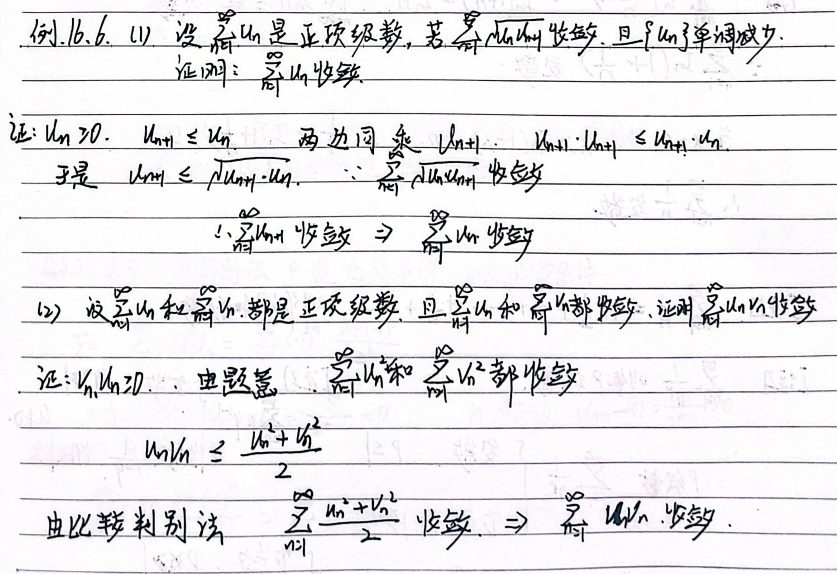 例.16.6. (1) 设 $\sum_{n=1}^{\infty} u_n$ 是正项级数, 若 $\sum_{n=1}^{\infty} \sqrt{u_n u_{n+1}}$ 收敛. 且 $\{u_n\}$ 单调减少.
证明: $\sum_{n=1}^{\infty} u_n$ 收敛.
证: $u_n \geq 0$. $u_{n+1} \leq u_n$ 两边同乘 $u_{n+1}$ $u_{n+1} \cdot u_{n+1} \leq u_{n+1} \cdot u_n$.
于是 $u_{n+1} \leq \sqrt{u_{n+1} \cdot u_n}$. ∵ $\sum_{n=1}^{\infty} \sqrt{u_n u_{n+1}}$ 收敛
∴ $\sum_{n=1}^{\infty} u_{n+1}$ 收敛 ⇒ $\sum_{n=1}^{\infty} u_n$ 收敛
(2) 设 $\sum_{n=1}^{\infty} u_n$ 和 $\sum_{n=1}^{\infty} v_n$ 都是正项级数. 且 $\sum_{n=1}^{\infty} u_n$ 和 $\sum_{n=1}^{\infty} v_n$ 都收敛. 证明 $\sum_{n=1}^{\infty} u_n v_n$ 收敛
证: $v_n, u_n \geq 0$. 由题意 $\sum_{n=1}^{\infty} u_n^2$ 和 $\sum_{n=1}^{\infty} v_n^2$ 都收敛
$u_n v_n \leq \frac{u_n^2 + v_n^2}{2}$
由比较判别法 $\sum_{n=1}^{\infty} \frac{u_n^2 + v_n^2}{2}$ 收敛. ⇒ $\sum_{n=1}^{\infty} u_n v_n$ 收敛.